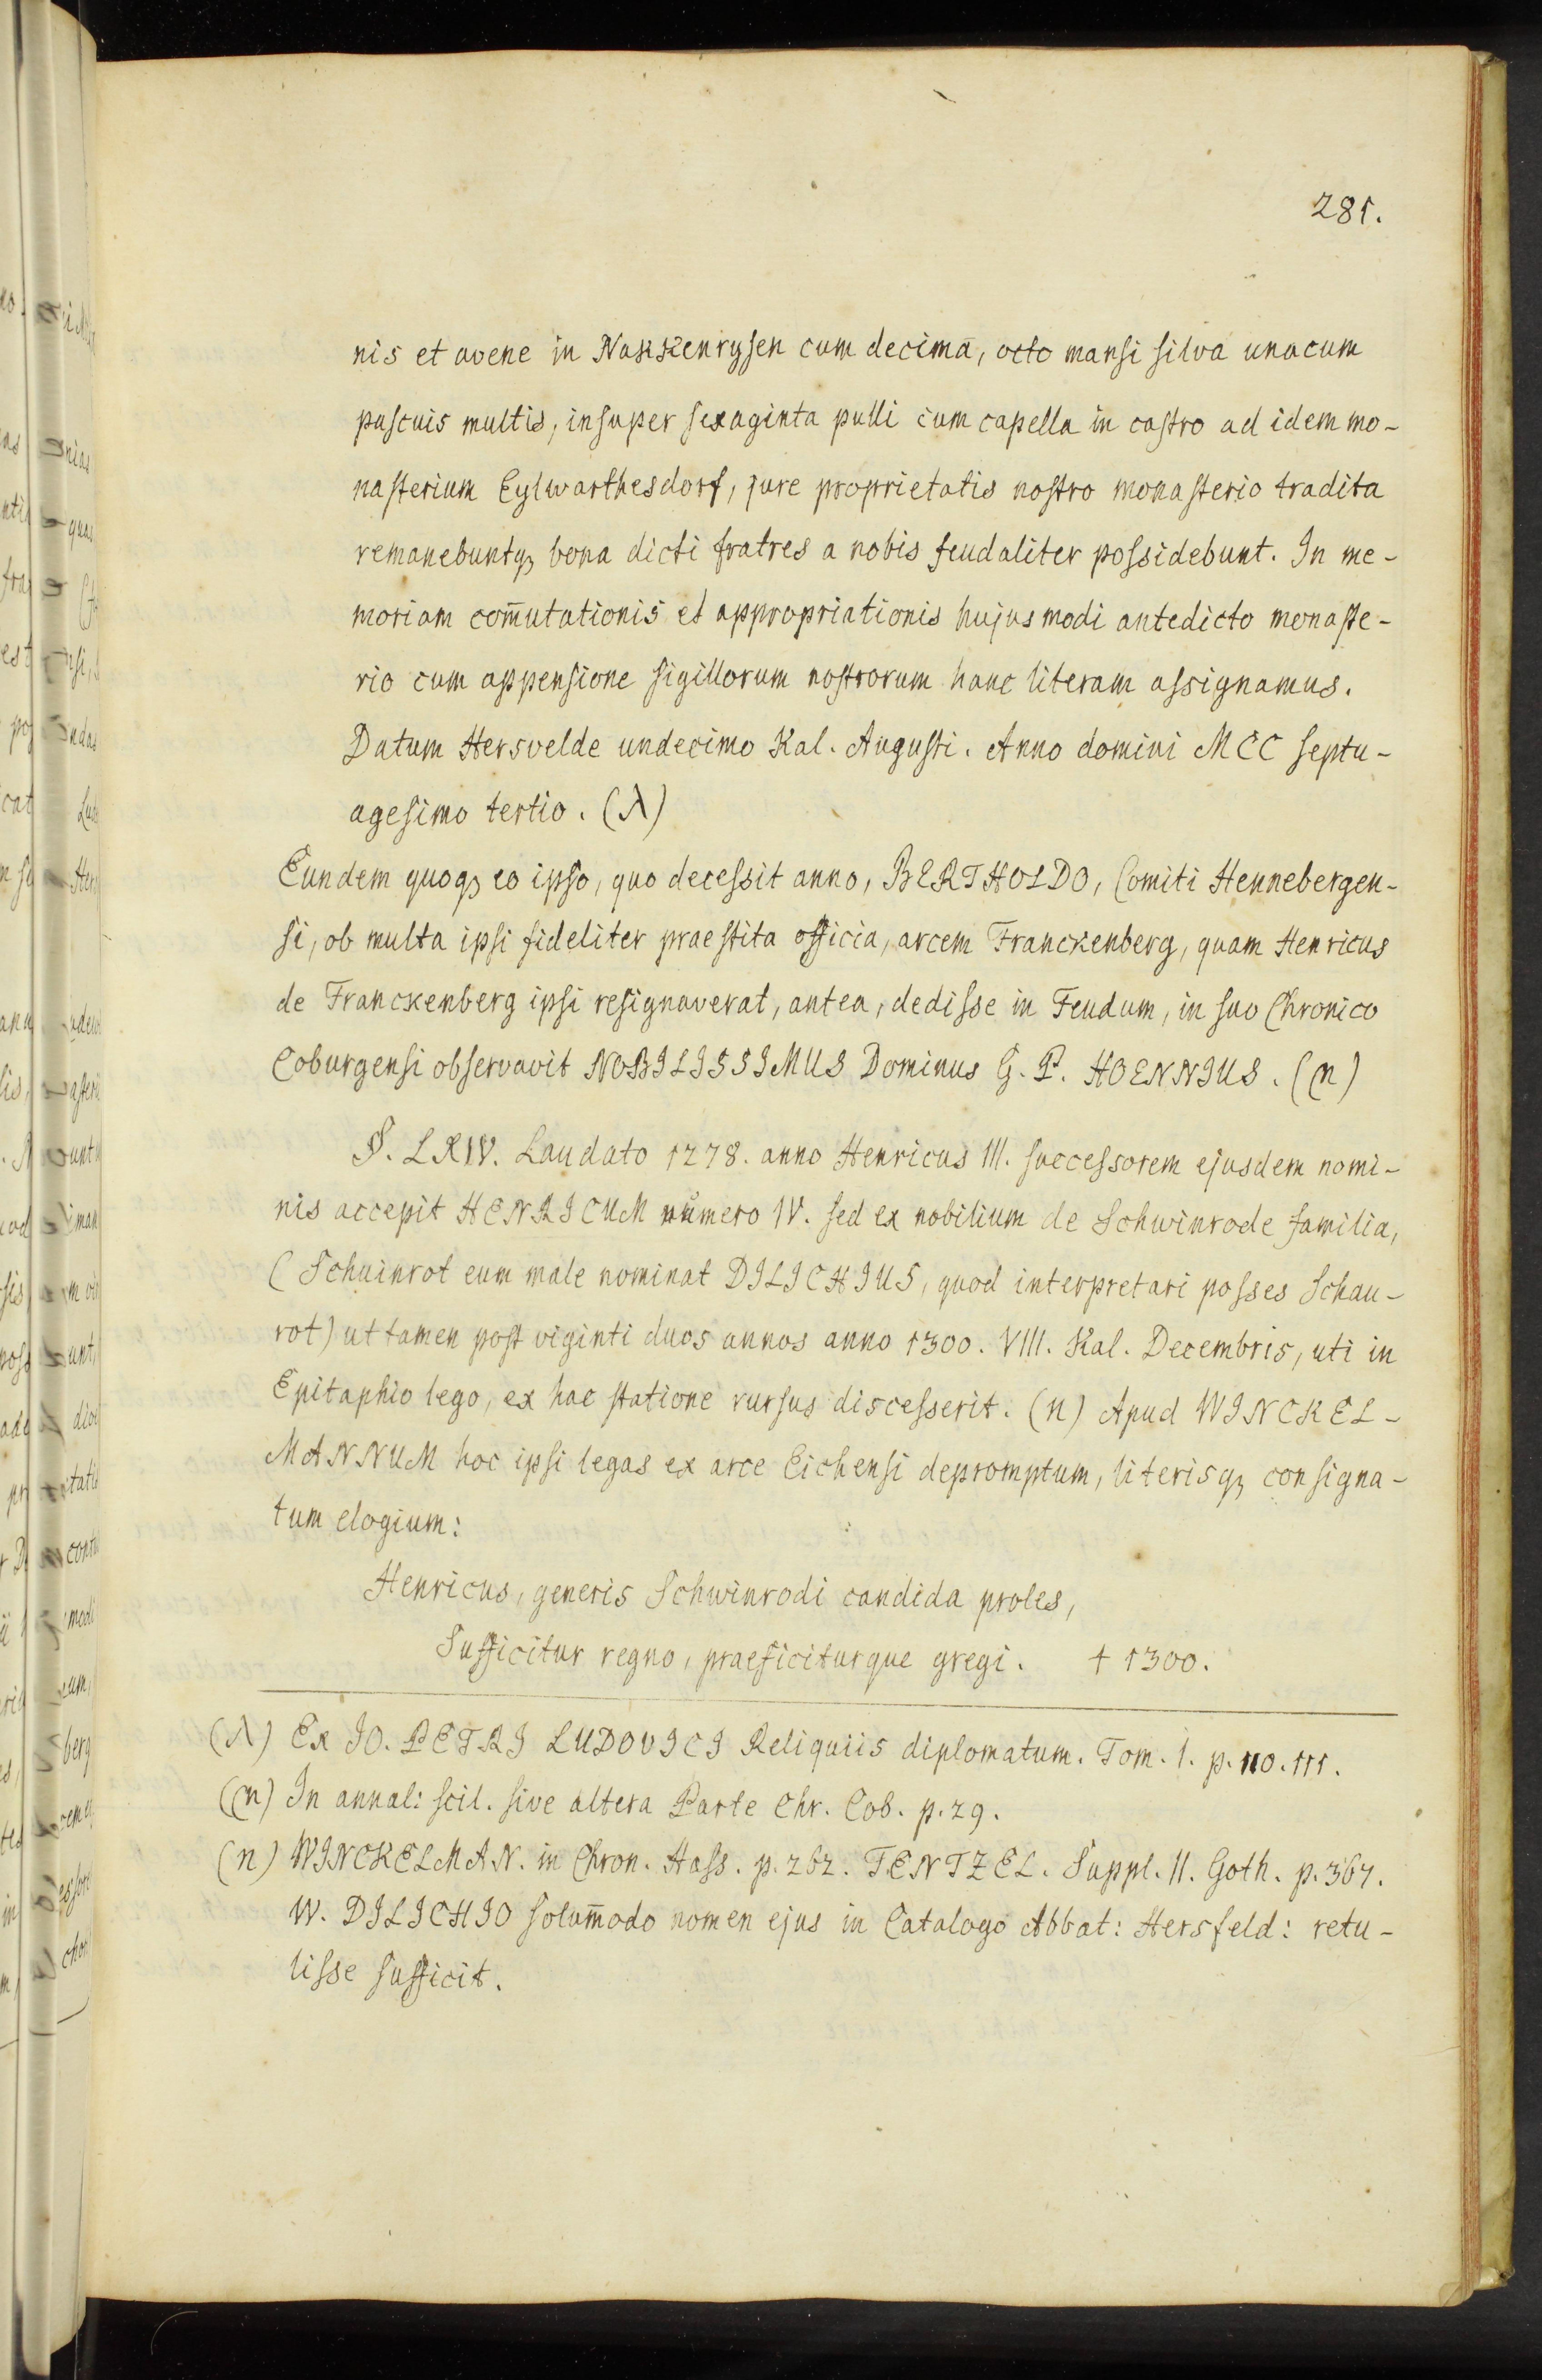 281.
nis et avene in Nakkenrysen cum decimā, octo mansi silva unacum
pascuis multis, insuper sexaginta pulli cum capella in castro ad idem mo-
nasterium Eylwarthesdorf, jure proprietatis nostro monasterio tradita
remanebuntq; bona dicti fratres a nobis feudaliter possidebunt. In me-
moriam com̄utationis et appropriationis hujusmodi antedicto monaste-
rio cum appensione sigillorum nostrorum hanc literam assignamus.
Datum Hersvelde undecimo Kal. Augusti. Anno domini MCC septu-
agesimo tertio. (λ)
Eundem quoq; eo ipso, quo decessit anno, BERTHOLDO, Comiti Hennebergen-
si, ob multa ipsi fideliter praestita officia, arcem Franckenberg, quam Henricus
de Franckenberg ipsi resignaverat, antea, dedisse in Feudum, in suo Chronico
Coburgensi observavit NOBILISSIMUS Dominus G. P. HOENNIUS. (m)
§. LXIV. Laudato 1278. anno Henricus III. successorem ejusdem nomi-
nis accepit HENRICUM numero IV. sed ex nobilium de Schwinrode familia,
(Schuinrot eum male nominat DILICHIUS, quod interpretari posses Schau-
rot) ut tamen post viginti duos annos anno 1300. VIII. Kal. Decembris, uti in
Epitaphio lego, ex hac statione rursus discesserit. (n) Apud WINCKEL-
MANNUM hoc ipsi legas ex arce Eichensi depromptum, literisq; consigna-
tum elogium:
Henricus, generis Schwinrodi candida proles,
Sufficitur regno, praeficiturque gregi. † 1300.
(λ) Ex IO. PETRI LUDOVICI Reliquiis diplomatum. Tom. I. p. 110. 111.
(m) In annal: scil. sive altera Parte Chr. Cob. p. 29.
(n) WINCKELMAN. in Chron. Hass. p. 262. TENTZEL. Suppl. II. Goth. p. 567.
W. DILICHIO solum̄odo nomen ejus in Catalogo Abbat: Hersfeld: retu-
lisse sufficit.